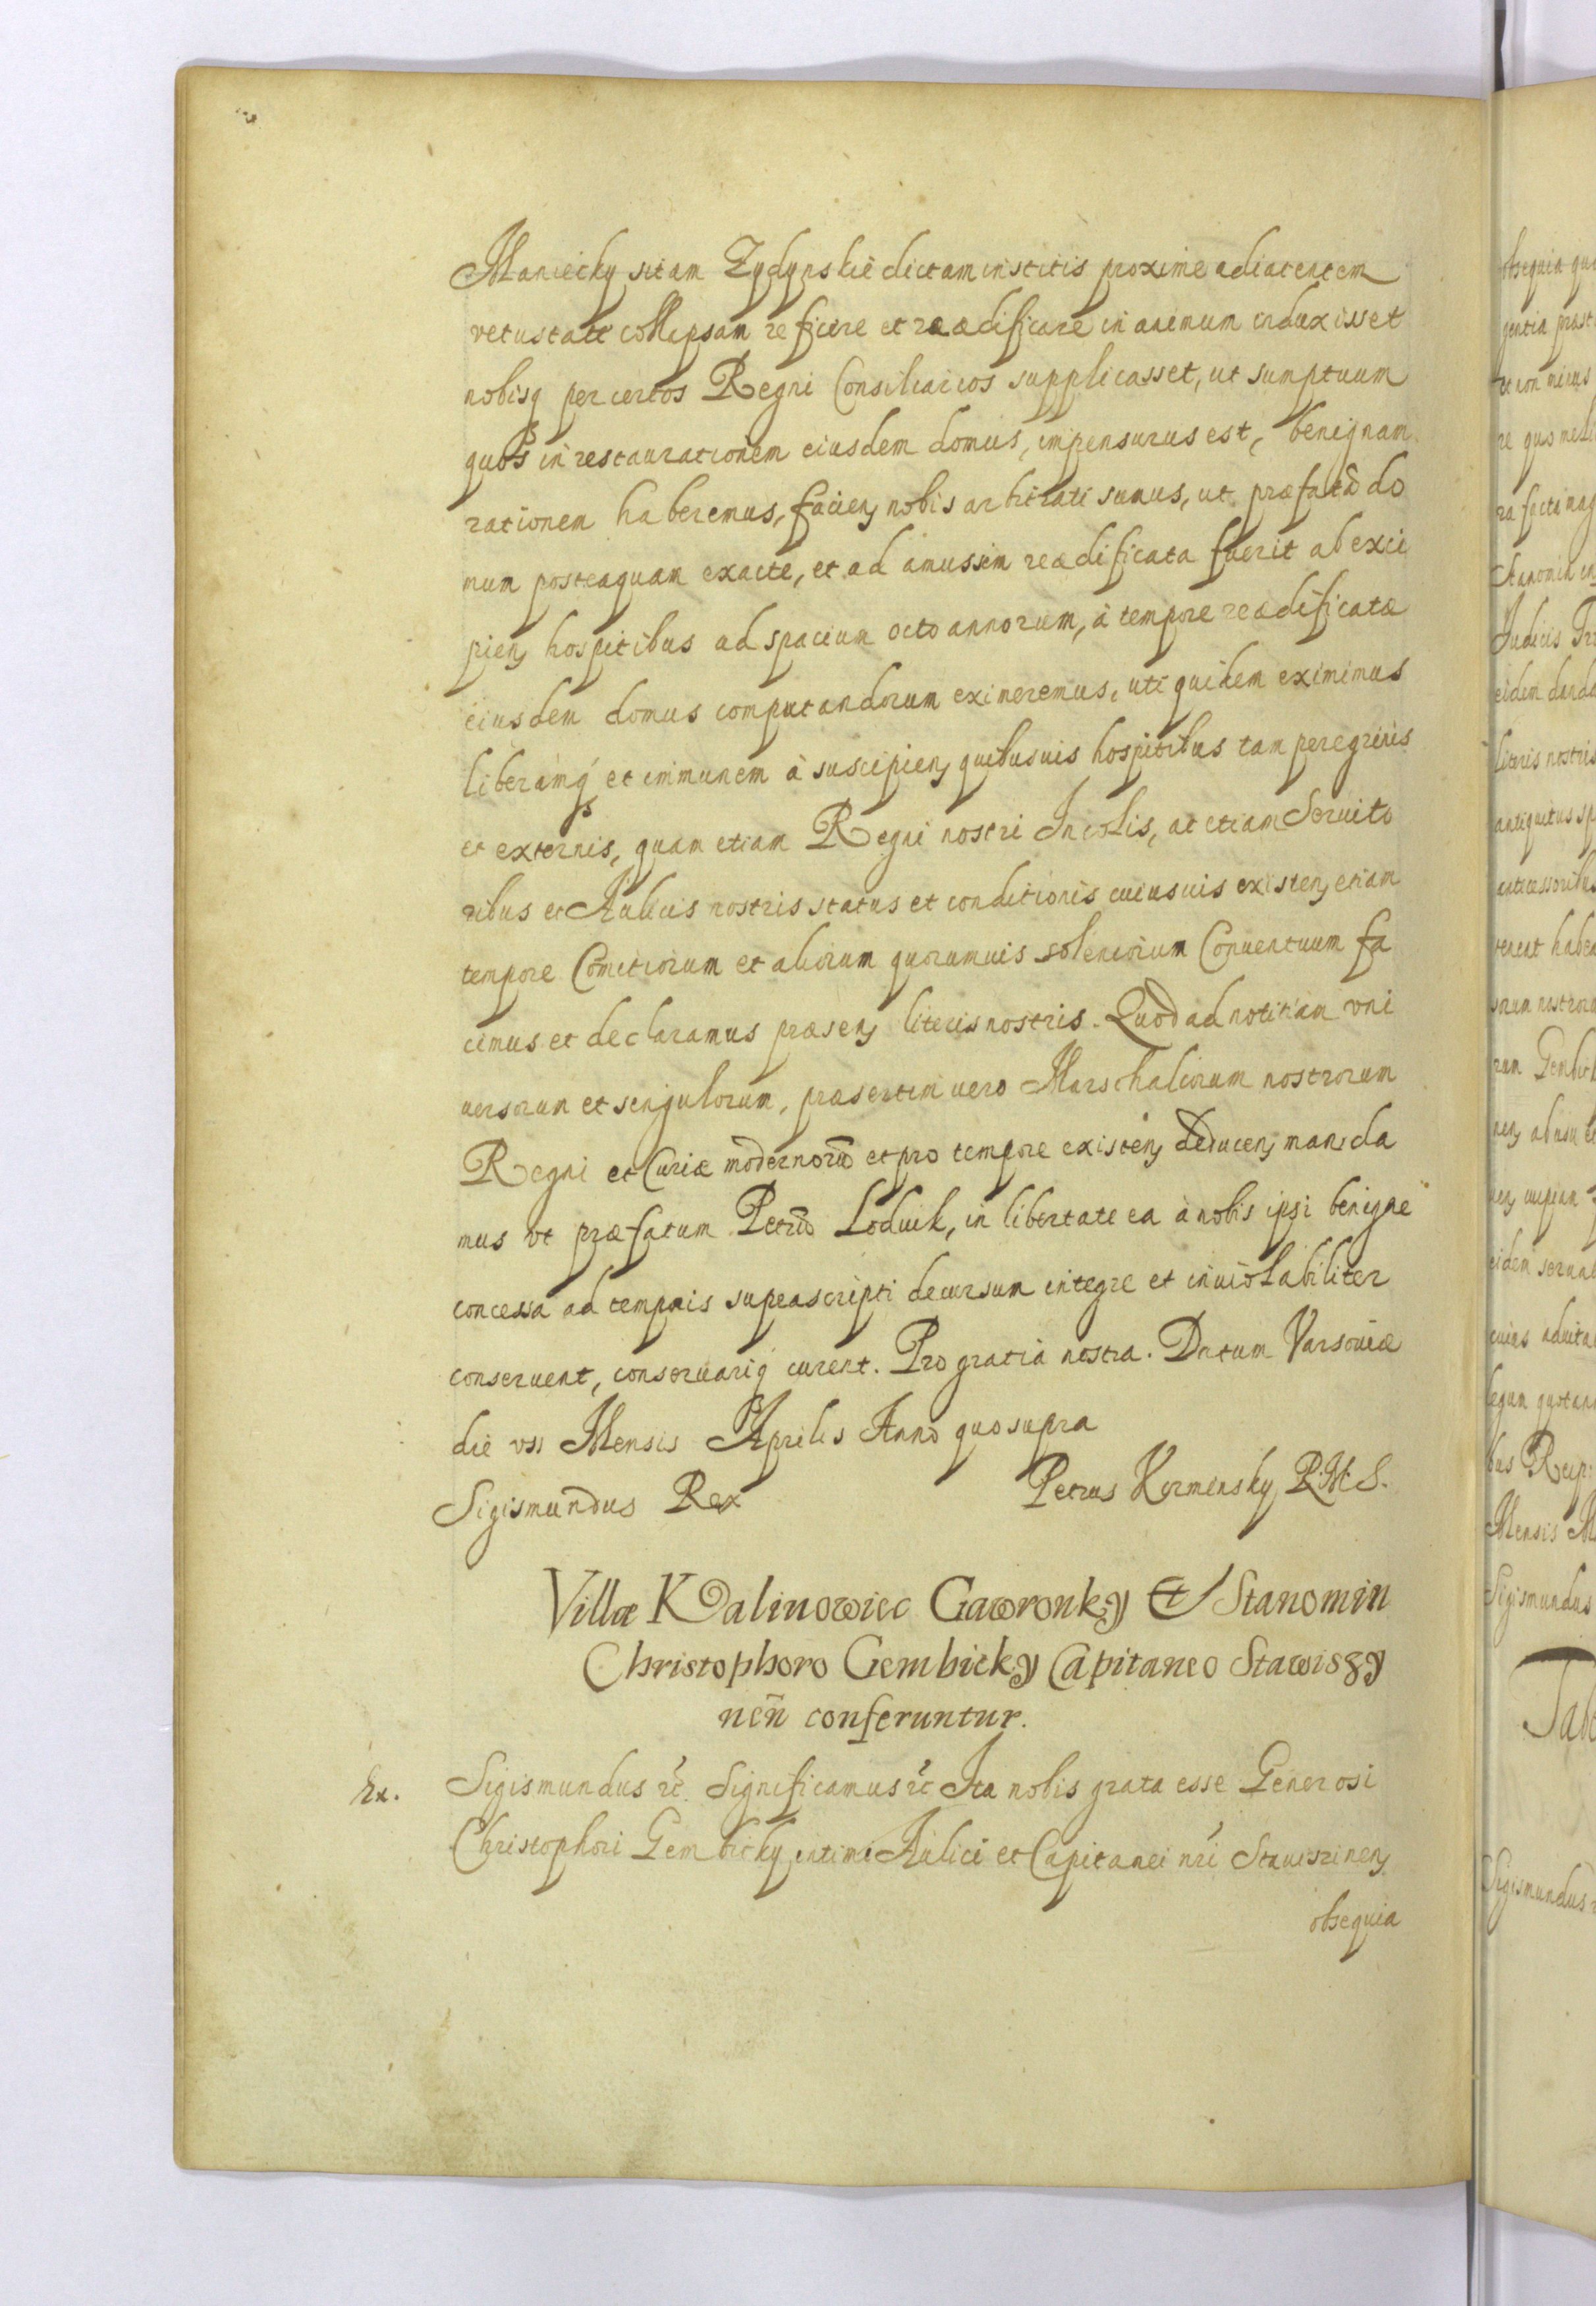 Maniecky sitam Zydynskie dictam institis proxime adiacentem
vetustate collapsam reficere et reædificare in animum induxisset
nobisq per certos Regni Consiliarios supplicasset, ut sumptuum
quos in restaurationem eiusdem domus, impensurus est, benignam
rationem haberemus, facien nobis arbitrati sumus, ut præfatã do
mum posteaquam exacte, et ad amussim reædificata fuerit ab exci
pien hospitibus ad spacium octo annorum, à tempore reædificatæ
eiusdem domus computandorum eximeremus, uti quidem eximimus
liberamq et immunem à suscipien quibusuis hospitibus tam peregrinis
et externis, quam etiam Regni nostri Incolis, ac etiam Seruito
ribus et Aulicis nostris status et conditionis cuiusuis existen etiam
tempore Comitiorum et aliorum quorumuis solenniorum Conuentuum fa
cimus et declaramus præsen literis nostris. Quod ad notitiam vni
uersorum et singulorum, præsertim uero Marschaliorum nostrorum
Regni et Curiæ modernorũ et pro tempore existen deducen manda
mus vt præfatum Petrũ Loduik, in libertate ea à nobis ipsi benigne
concessa ad temporis suprascripti decursum integre et inuiolabiliter
conseruent, conseruariq curent. Pro gratia nostra. Datum Varsouiæ
die vii Mensis Aprilis Anno quo supra
Sigismundus Rex Petrus Kerminsky R.M.S.
Villæ Kalinowiec Gawronky Et Stanomin
Christophoro Gembicky Capitaneo Stawiszy
neñ conferuntur.
Ex. Sigismundus etc. Significamus etc Ita nobis grata esse Generosi
Christophori Gembicky intimi Aulici et Capitanei nri Stauiszinen
obsequia